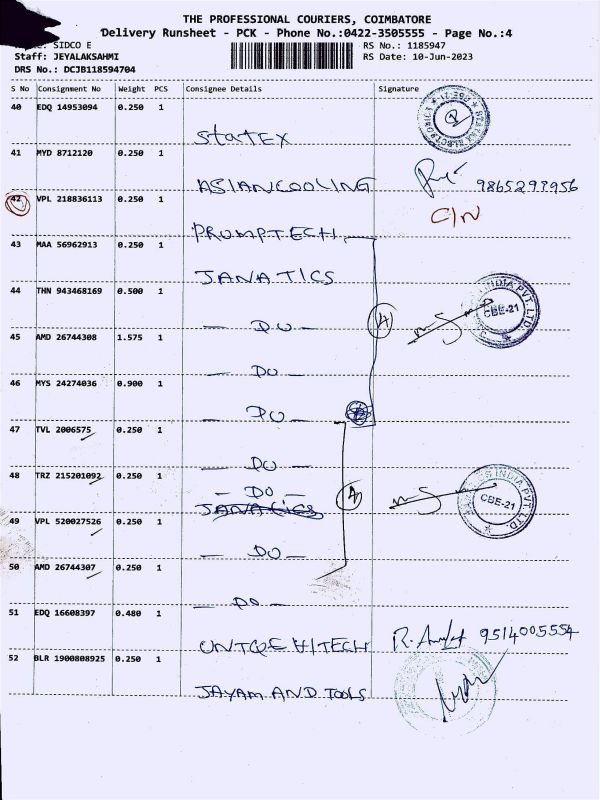 THE PROFESSIONAL COURIERS, COIMBATORE
Delivery Runsheet - PCK - Phone No.:0422-3505555 - Page No.:4
SIDCO E
RS No.: 1185947
Staff: JEYALAKSAHMI
RS Date: 10-Jun-2023
DRS No.: DCJB118594704
S No Consignment No Weight PCS Consignee Details Signature
40 EDQ 14953094 0.250 1
STATEX
41 MYD 8712120 0.250 1
ASIAN COOLING 9865293956
42 VPL 218836113 0.250 1
C/N
PROMPTECH
43 MAA 56962913 0.250 1
JANATICS
44 THN 943468169 0.500 1
INDIA PVT. LTD.
CBE-21
- DO -
45 AMD 26744308 1.575 1
- DO -
46 MYS 24274036 0.900 1
- DO -
47 TVL 2006575 0.250 1
- DO -
48 TRZ 215201092 0.250 1
- DO -
JANATICS
INDIA PVT. LTD.
CBE-21
49 VPL 520027526 0.250 1
- DO -
50 AMD 26744307 0.250 1
- DO -
51 EDQ 16608397 0.480 1
UNIQUE HITECH 9514005554
52 BLR 1900808925 0.250 1
JAYAM AND TOOLS